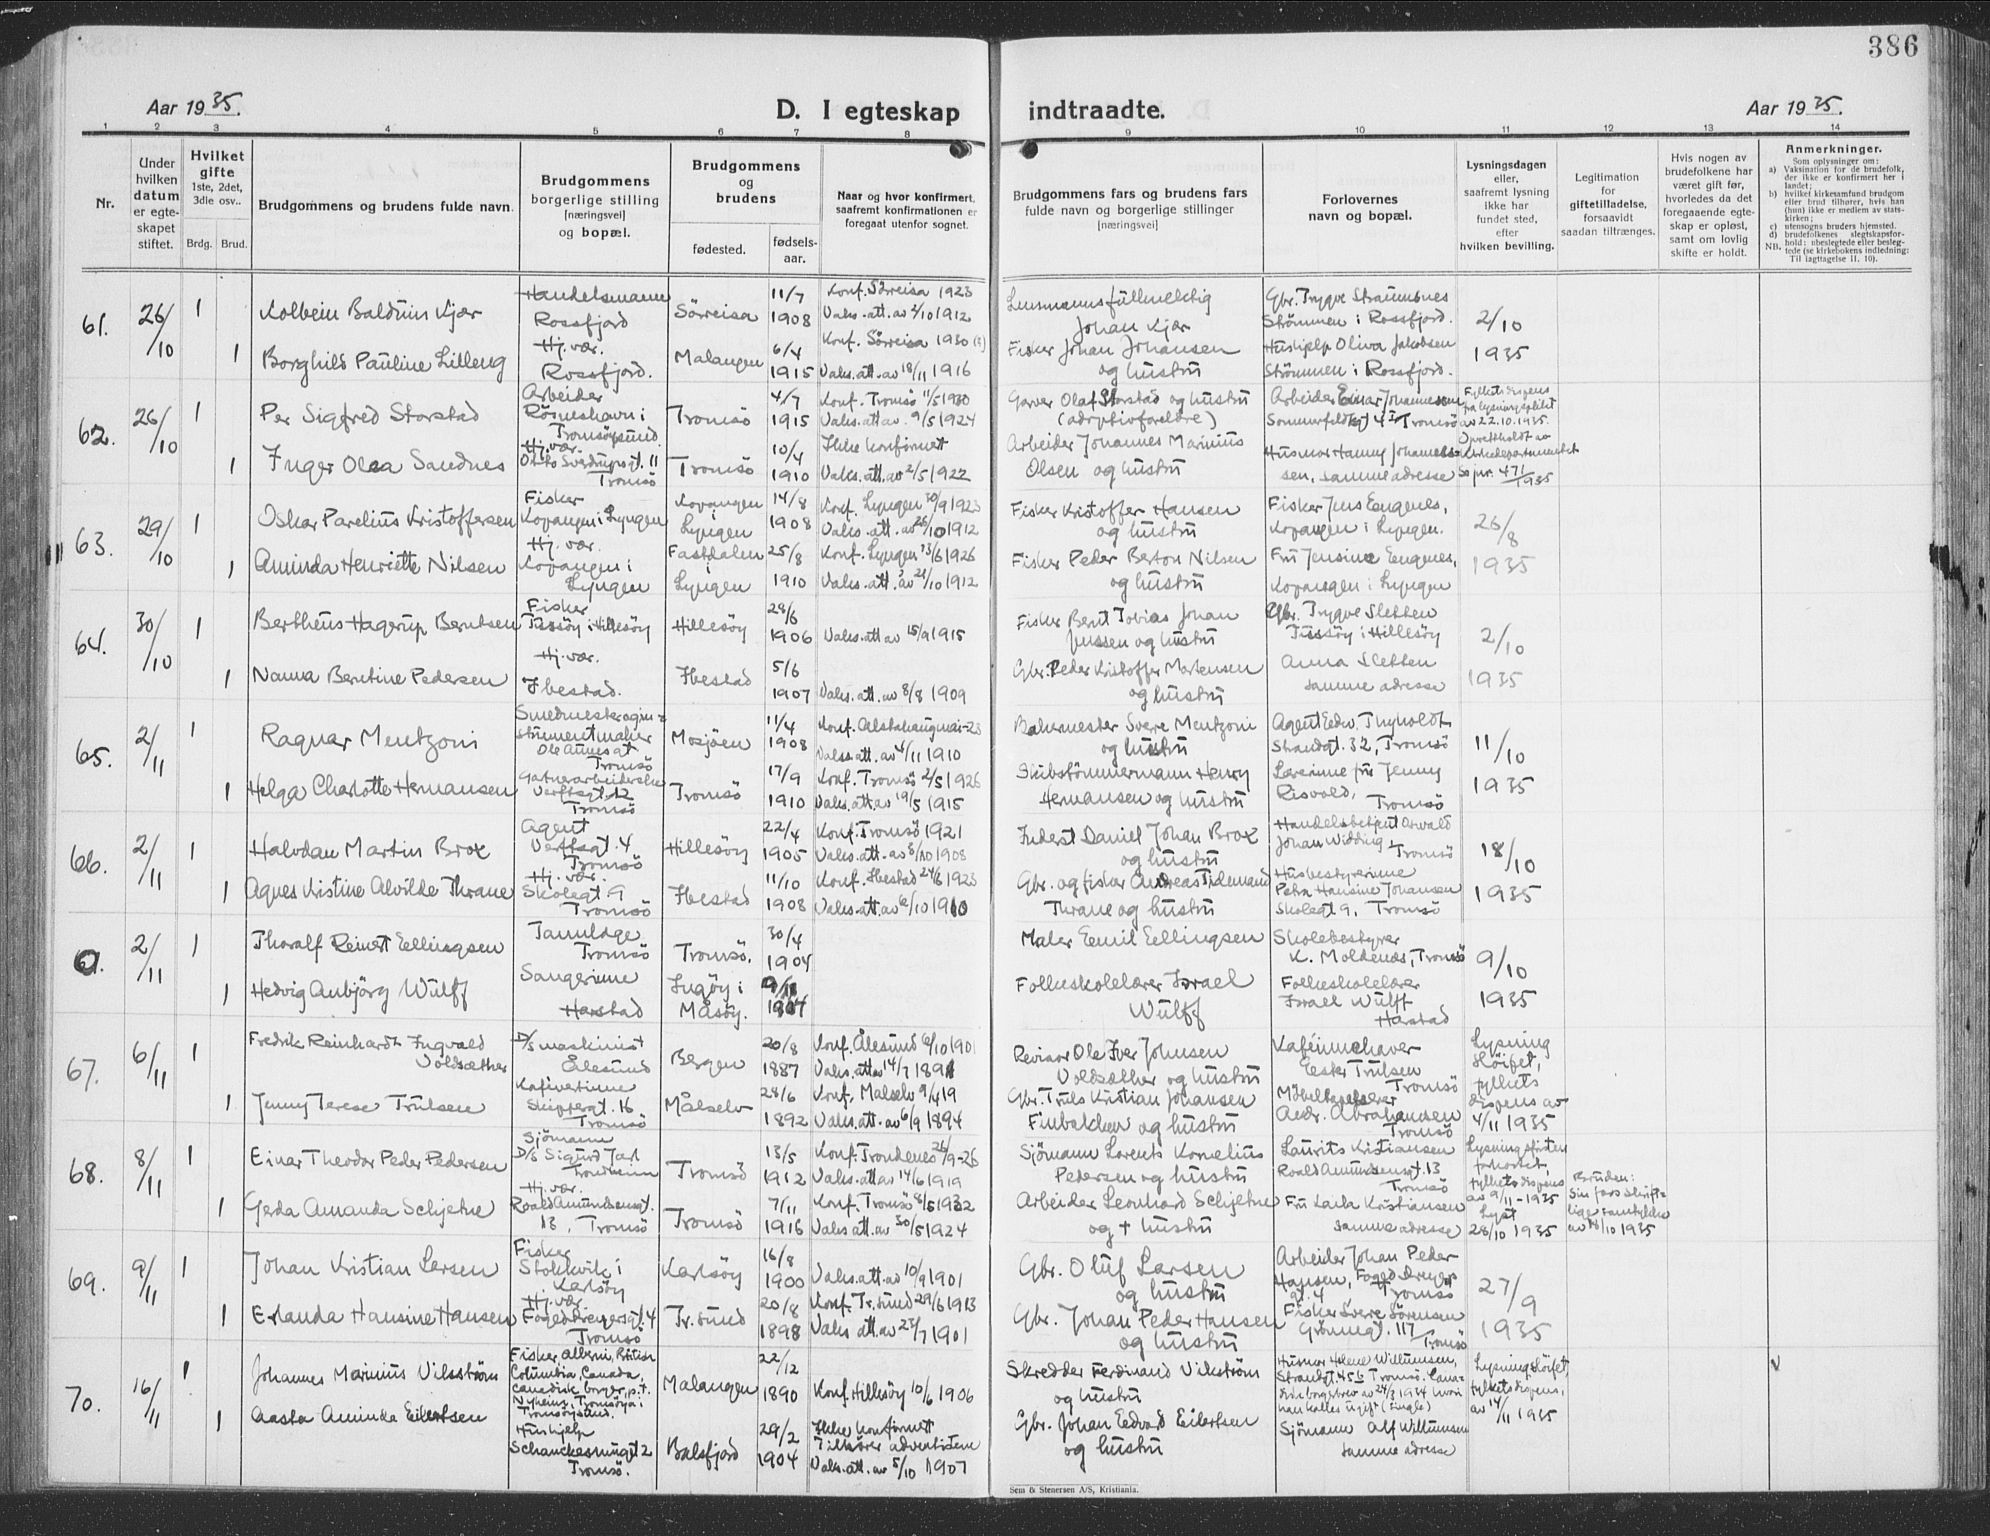 386
Aar 1935.
D. I egteskap indtraadte.
Aar 1935.
1 2 3 4 5 6 7 8 9 10 11 12 13 14
Nr.
Under
hvilken
datum
er egte-
skapet
stiftet.
Hvilket
gifte
1ste, 2det,
3die osv..
Brdg. Brud.
Brudgommens og brudens fulde navn.
Brudgommens
borgerlige stilling
[næringsvei]
og bopæl.
Brudgommens
og
brudens
fødested.
fødsels-
aar.
Naar og hvor konfirmert,
saafremt konfirmationen er
foregaat utenfor sognet.
Brudgommens fars og brudens fars
fulde navn og borgerlige stillinger
[næringsvei]
Forlovernes
navn og bopæl.
Lysningsdagen
eller,
saafremt lysning
ikke har
fundet sted,
efter
hvilken bevilling.
Legitimation
for
giftetilladelse,
forsaavidt
saadan tiltrænges.
Hvis nogen av
brudefolkene har
været gift før,
hvorledes da det
foregaaende egte-
skap er opløst,
samt om lovlig
skifte er holdt.
Anmerkninger.
Som oplysninger om:
a) Vaksination for de brudefolk,
der ikke er konfirmert her i
landet;
b) hvilket kirkesamfund brudgom
eller brud tilhører, hvis han
(hun) ikke er medlem av stats-
kirken;
c) utensogns bruders hjemsted.
d) brudefolkenes slegtskapsfor-
hold: ubeslegtede eller besleg-
NB. tede (se kirkebokens indledning:
Til iagttagelse II. 10).
61. 26/10 1
Kolbein Balduin Kjær
Handelsmann
Rossfjord
Sörreisa
11/7
1908
Konf. Sörreisa 1923
Vaks. att. av 2/10 1912
Lensmannsfullmektig
Johan Kjær
Gbr. Trygve Straumsnes
Strömmen i Rossfjord.
2/10
1935
1
Borghild Pauline Lilleng
Hj. vær.
Rossfjord.
Malangen
6/4
1915
Konf. Sörreisa 1930
Vaks. att. av 18/11 1916
Fisker Johan Johansen
og hustru
Hushjelp Oliva Jakobsen
Strömmen i Rossfjord.
62. 26/10 1
Per Sigfred Storstad
Arbeider
Tromsöysund.
Tromsö
4/7
1915
Konf. Tromsö 11/5 1930
Vaks. att. av 9/5 1924
Garver Olaf Storstad og hustru
(adoptivforeldre)
Arbeider Einar Johannessen
Sommerfeldtsgt 4 I Tromsö
Fylkets dispens
fra lysningsplikt
av 22.10.1935.
Oprettholdt av
Kirkedepartementet
1
Inger Olea Sandnes
Hj. vær.
Otto Sverdrupsgt. 11
Tromsö
Tromsö
10/4
1910
Ikke konfirmert
Vaks. att. av 2/5 1922
Arbeider Johannes Marinius
Olsen og hustru
Husmor Hanny Johannes-
sen, samme adresse
63. 29/10 1
Oskar Parelius Kristoffersen
Fisker
Kopangen i Lyngen
Kopangen
Lyngen
14/8
1908
Konf. Lyngen 30/9 1923
Vaks. att. av 26/10 1912
Fisker Kristoffer Hansen
og hustru
Fisker Jens Engenes,
Kopangen i Lyngen.
26/8
1935
1
Aminda Henriette Nilsen
Hj. vær.
Kopangen i
Lyngen
Fastdalen
Lyngen
25/8
1910
Konf. Lyngen 13/6 1926
Vaks. att. av 21/10 1912
Fisker Peder Berton Nilsen
og hustru
Fru Jensine Engenes,
Kopangen i Lyngen
64. 30/10 1
Bertheus Hagerup Berntsen
Fisker
Tussöy i Hillesöy
Hillesöy
29/6
1906
Vaks. att. av 15/9 1915
Fisker Bernt Tobias Johan
Jenssen og hustru
Gbr. Trygve Sletten
Tussöy i Hillesöy
2/10
1935
1
Nanna Berntine Pedersen
Hj. vær.
Ibestad.
Ibestad
5/6
1907
Vaks. att. av 8/8 1909
Gbr. Peder Kristoffer Mortensen
og hustru
Anna Sletten
samme adresse
65. 2/11 1
Ragnar Mentzoni
Smedmester og in-
strumentmaker
Tromsö
Mosjöen
11/4
1908
Konf. Alstahaug mai-23
Vaks. att. av 4/11 1910
Bakermester Sverre Mentzoni
og hustru
Agent Edw. Thyholdt
Strandgt. 32, Tromsö
11/10
1935
1
Helga Charlotte Hermansen
Verftsgt. 12
Tromsö
Tromsö
17/9
1910
Konf. Tromsö 2/5 1926
Vaks. att. av 19/5 1915
Skibstömmermann Henry
Hermansen og hustru
Lærerinne fru Jenny
Risvold,
Tromsö
66. 2/11 1
Halvdan Martin Brox
Agent
Verftsgt. 4
Tromsö
Hillesöy
22/4
1905
Konf. Tromsö 1921
Vaks. att. av 8/10 1908
Inderst Daniel Johan Brox
og hustru
Handelsbetjent Osvald
Johan Widding,
Tromsö
18/10
1935
1
Agnes Kristine Alvilde Thrane
Hj. vær.
Skolegt 9
Tromsö
Ibestad
11/10
1908
Konf. Ibestad 24/6 1923
Vaks. att. av 6/10 1910
Gbr. og fisker Andreas Tidemand
Thrane og hustru
Husbestyrerinne
Petra Hansine Johansen
Skolegt 9, Tromsö
2/11 1
Thoralf Reinert Ellingsen
Tannlæge
Tromsö
Tromsö.
30/4
1904
Maler Emil Ellingsen
Skolebestyrer
K. Moldenæs, Tromsö
9/10
1935
1
Hedvig Anbjörg Wulff
Sangerinne
Harstad
Ingöy i
Måsöy.
Folkeskolelærer Israel
Wulff
Folkeskolelærer
Israel Wulff
Harstad
67. 6/11 1
Fredrik Reinhardt Ingvald
Voldsæther
D/s maskinist
Ålesund
Bergen
20/8
1887
Konf. Ålesund 6/10 1901
Vaks. att. av 14/7 1891
Revisor Ole Iver Johnsen
Voldsæther og hustru
Kaféinnehaver
Ester Trulsen
Tromsö
Lysning
slöifet,
fylkets
dispens av
4/11 1935
1
Jenny Terese Trulsen
Kafévertinne
Skippergt. 16
Tromsö
Målselv
28/6
1892
Konf. Målselv 9/4 19
Vaks. att. av 6/9 1894
Gbr. Truls Kristian Johansen
Finbakken og hustru
Möbelhandler
Andr. Abrahamsen
Tromsö
68. 8/11 1
Einar Theodor Peder Pedersen
Sjömann
D/s Sigurd Jarl
Trondheim
Tromsö
13/5
1912
Konf. Trondenes 26/9-26
Vaks. att. av 14/6 1919
Sjömann Lorents Kornelius
Pedersen og hustru
Laurits Kristiansen
Roald Amundsensgt. 13
Tromsö
Lysningsfristen
forkortet,
fylkets dispens
av 9/11-1935
Lyst
28/10 1935
Bruden:
Sin fars skrift-
lige samtykke
av 28/10 1935
1
Gerda Amanda Schjetne
Hj. vær.
Roald Amundsensgt.
13, Tromsö
Tromsö
7/11
1916
Konf. Tromsö 8/5 1932
Vaks. att. av 30/5 1924
Arbeider Leonhard Schjetne
og + hustru
Fru Karla Kristiansen
samme adresse
69. 9/11 1
Johan Kristian Larsen
Fisker
Stokkvik i
Karlsöy
Karlsöy
16/8
1900
Vaks. att. av 10/9 1901
Gbr. Oluf Larsen
og hustru
Arbeider Johan Peder
Hansen, Foged Dreyers
gt. 4 Tromsö
27/9
1935
1
Erlanda Hansine Hansen
Hj. vær
Foged Dreyersgt. 4
Tromsö
Tr. sund
20/8
1898
Konf. Tr. sund 29/6 1913
Vaks att. av 23/7 1901
Gbr. Johan Peder Hansen
og hustru
Fisker Sverre Sörensen
Grönnegt. 117
Tromsö
70. 16/11 1
Johannes Marinius Vikström
Fisker, Alberni, British
Columbia, Canada,
canadisk borger, p.t.
Tromsöysund.
Malangen
22/12
1890
Konf. Hillesöy 10/6 1906
Skredder Ferdinand Vikström
og hustru
Husmor Helene Willumsen,
Strandgt. 45b Tromsö. Cana-
disk borgerbrev av 24/3 1934 hvori
han kalles ugift (single)
Lysning slöifet,
fylkets dispens,
av 14/11 1935
1
Aasta Aminda Eilertsen
Hushjelp
Schanckesmuggt 2
Tromsö.
Balsfjord
29/2
1904
Ikke konfirmert
Tilhörer adventistene
Vaks. att. av 5/10 1907
Gbr. Johan Edvard Eilertsen
og hustru
Sjömann Alf Willumsen
samme adresse
Sem & Stenersen A/S, Kristiania.